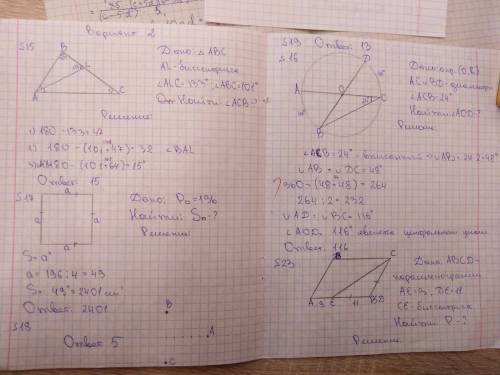 Вариант 2
S15
B
A
L
C
Дано: △ABC
AL-биссектриса
∠ALC=133°, ∠ABC=101°
Найти: ∠ACB-?
Решение
1) 180-133=47
2) 180-(101+47)=32 ∠BAL
180-(101+64)=15°
Ответ: 15
S17
a
a
a
a
Дано: P▫=196
Найти: S▫-?
Решение:
S=a²
a=196:4=49
S=49²=2401
Ответ: 2401
S18
Ответ 5
B
A
C
S19 Ответ: 13
S16
D
A
O
C
B
Дано: окр.(O,R)
AC и BD-диаметры
∠ACB-24°
Найти: ∠AOD-?
Решение:
∠ACB=24°-вписанный ⇒ ∪AB=24·2=48°
∪AB=∪DC=48°
360-(48+48)=264
264:2=232
∪AD=∪BC=116°
∠AOD=116° является центральным
Ответ: 116
S23
B
C
A
9
E
11
D
Дано: ABCD-
параллелограмм
AE=9, DE=11
CE-биссектриса
Найти: P-?
Решение: